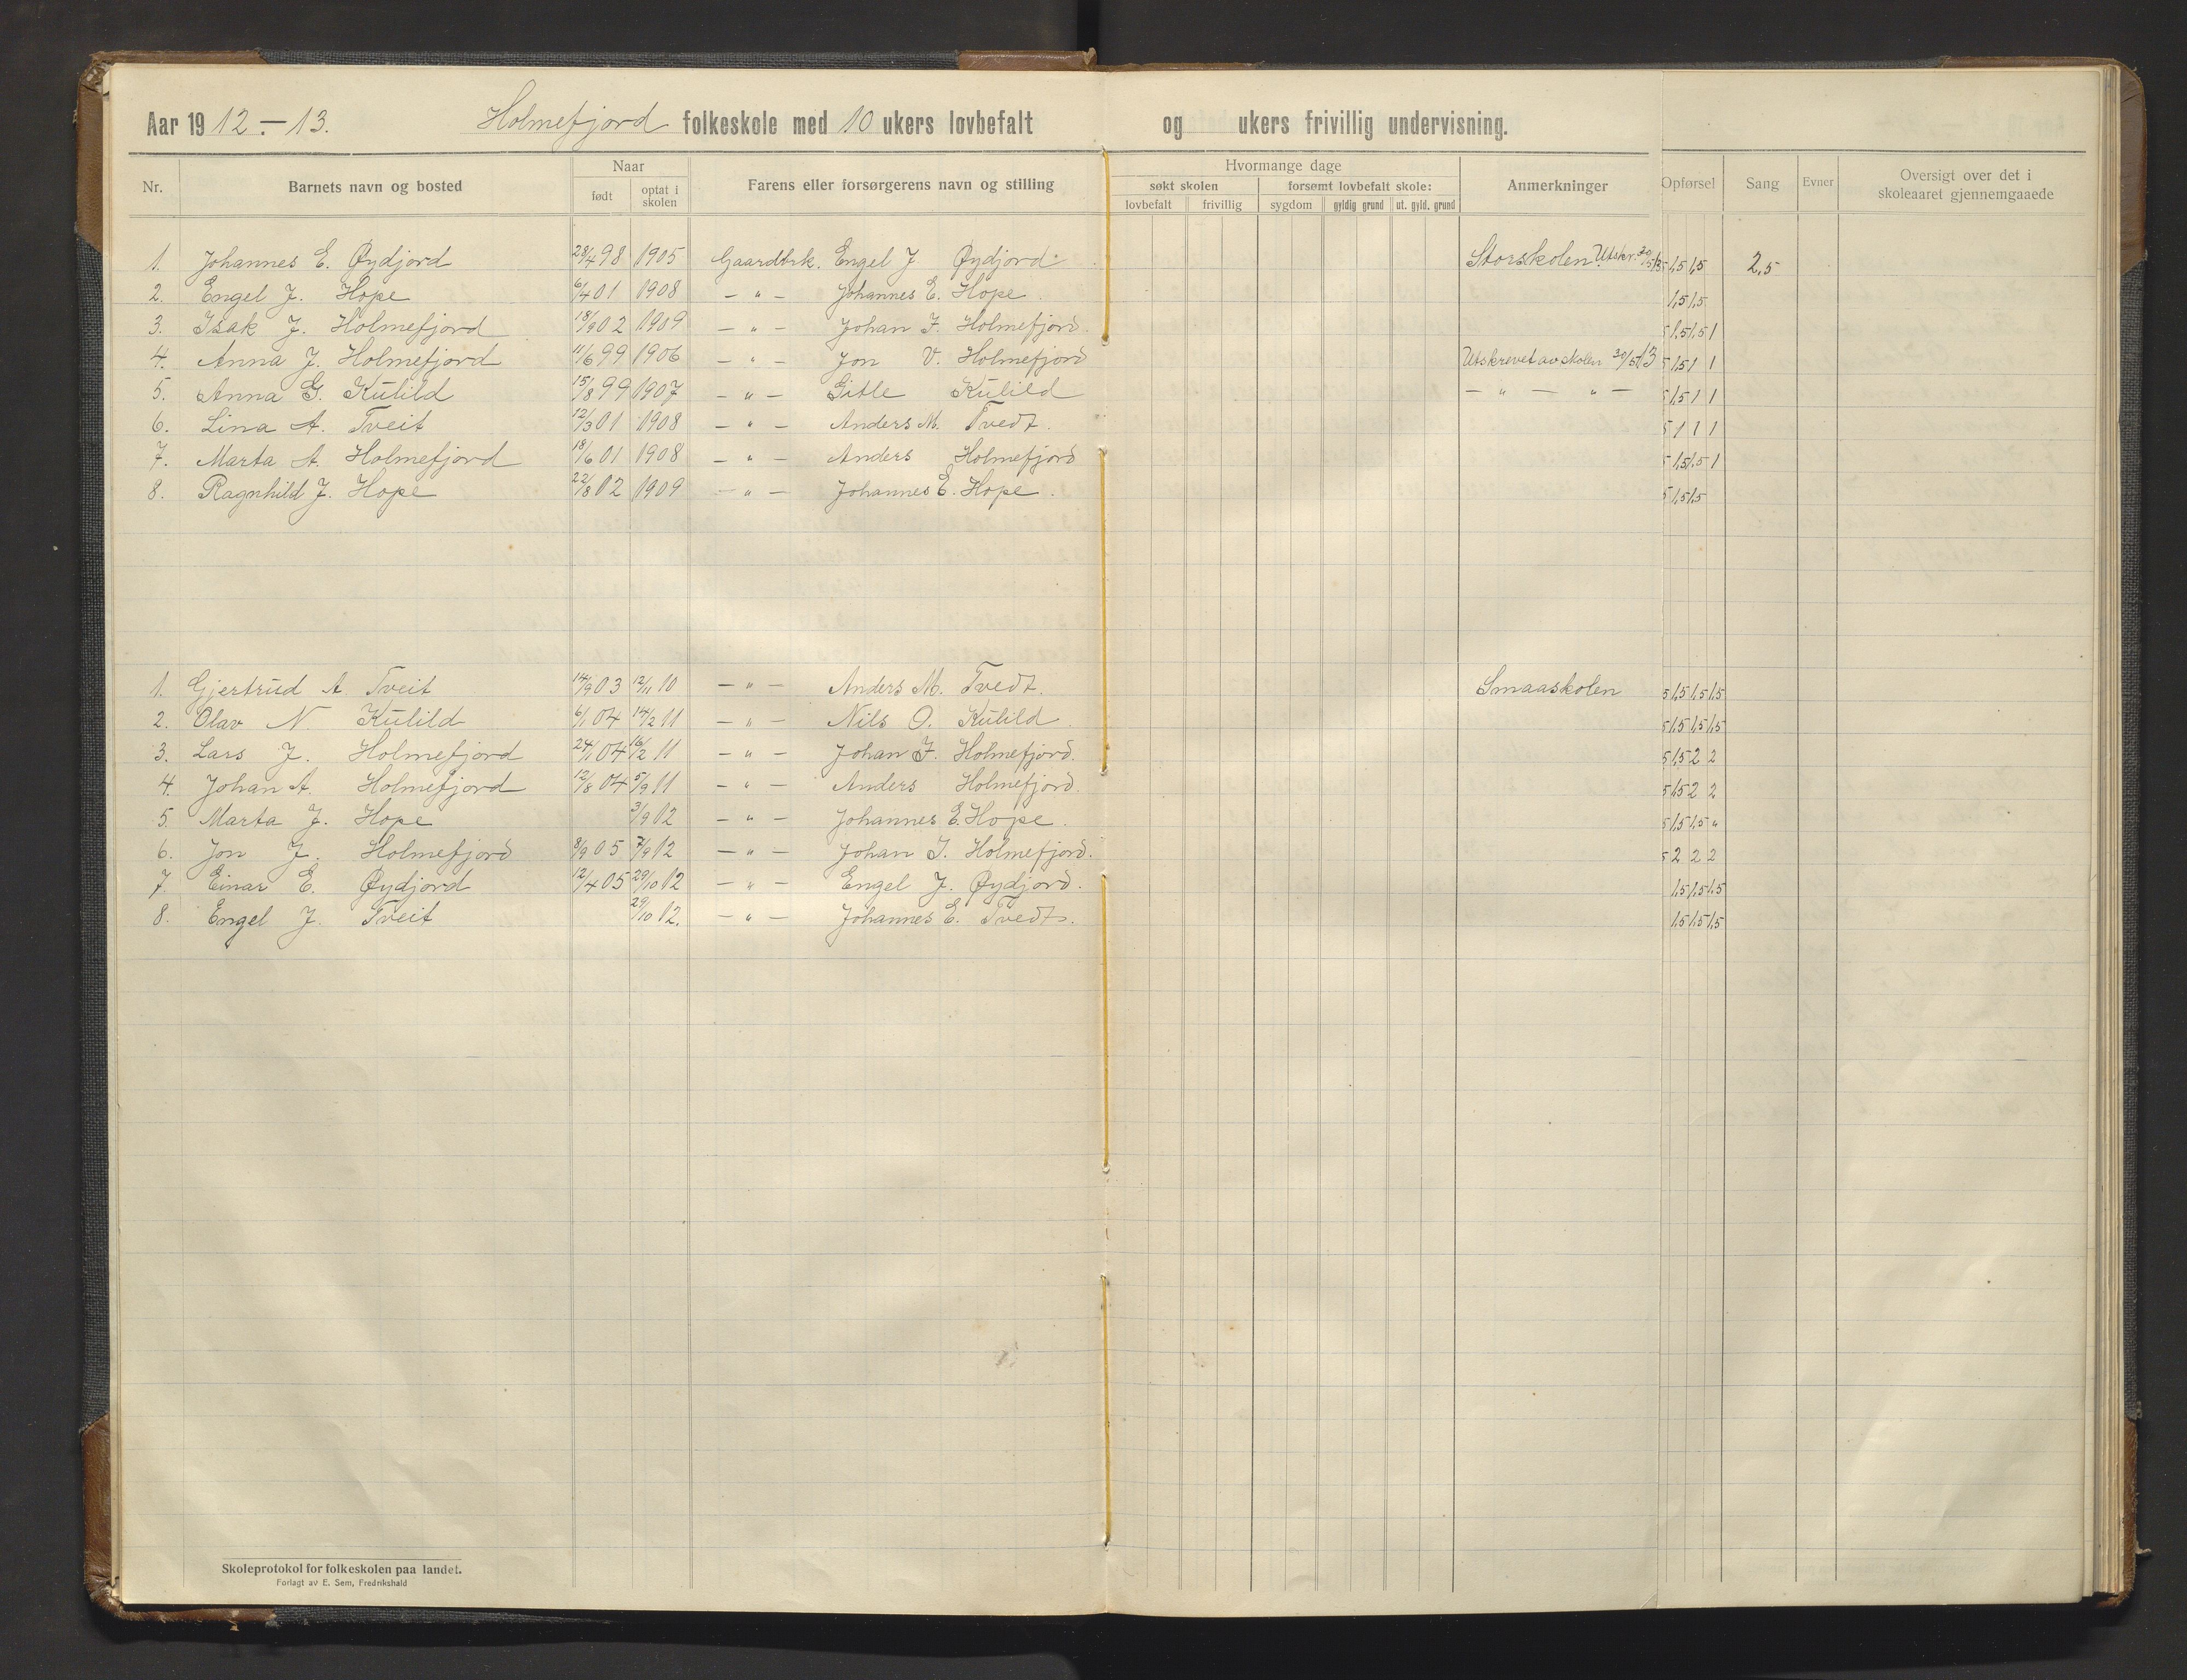 Aar 1912.-13. Holmefjord folkeskole med 10 ukers lovbefalt og ukers frivillig undervisning.
Nr. Barnets navn og bosted Naar født optat i skolen Farens eller forsørgerens navn og stilling Hvormange dage søkt skolen lovbefalt frivillig forsømt lovbefalt skole: sygdom gyldig grund ut. gyld. grund Anmerkninger Opførsel Sang Evner Oversigt over det i skoleaaret gjennemgaaede
1. Johannes E. Øydjord 28/4 98 1905 Gaardbrk. Engel J. Øydjord. Storskolen Utskr. 30/5 13 1,5 1,5 2,5
2. Engel J. Hope 6/4 01 1908 — " — Johannes E. Hope. 1,5 1,5
3. Isak J. Holmefjord 18/9 02 1909 — " — Johan I. Holmefjord. 5 1,5 1,5 1
4. Anna J. Holmefjord 11/6 99 1906 — " — Jon V. Holmefjord Utskrevet av skolen 30/5 13 5 1,5 1 1
5. Anna G. Kulild 15/8 99 1907 — " — Gitle Kulild — " — " — 5 1,5 1 1
6. Lina A. Tveit 12/3 01 1908 — " — Anders M. Tvedt. 5 1 1 1
7. Marta A. Holmefjord 18/6 01 1908 — " — Anders Holmefjord 5 1,5 1,5 1
8. Ragnhild J. Hope 22/8 02 1909 — " — Johannes E. Hope. 5 1,5 1,5
1. Gjertrud A Tveit 14/9 03 12/11 10 — " — Anders M. Tvedt. Smaaskolen 5 1,5 1,5 1,5
2. Olav N Kulild 6/1 04 14/2 11 — " — Nils O. Kulild. 5 1,5 1,5 1,5
3. Lars J. Holmefjord 24/1 04 16/2 11 — " — Johan I. Holmefjord. 5 1,5 2 2
4. Johan A. Holmefjord 12/8 04 5/9 11 — " — Anders Holmefjord. 5 1,5 2 2
5. Marta J. Hope 3/9 12 — " — Johannes E. Hope. 5 1,5 1,5 "
6. Jon J. Holmefjord 8/9 05 7/9 12 — " — Johan I. Holmefjord. 5 2 2 2
7. Einar E. Øydjord 12/4 05 29/10 12 — " — Engel J. Øydjord. 1,5 1,5 1,5
8. Engel J. Tveit 29/10 12. — " — Johannes E. Tvedt. 1,5 1,5 1,5
Skoleprotokol for folkeskolen paa landet.
Forlagt av E. Sem, Fredrikshald